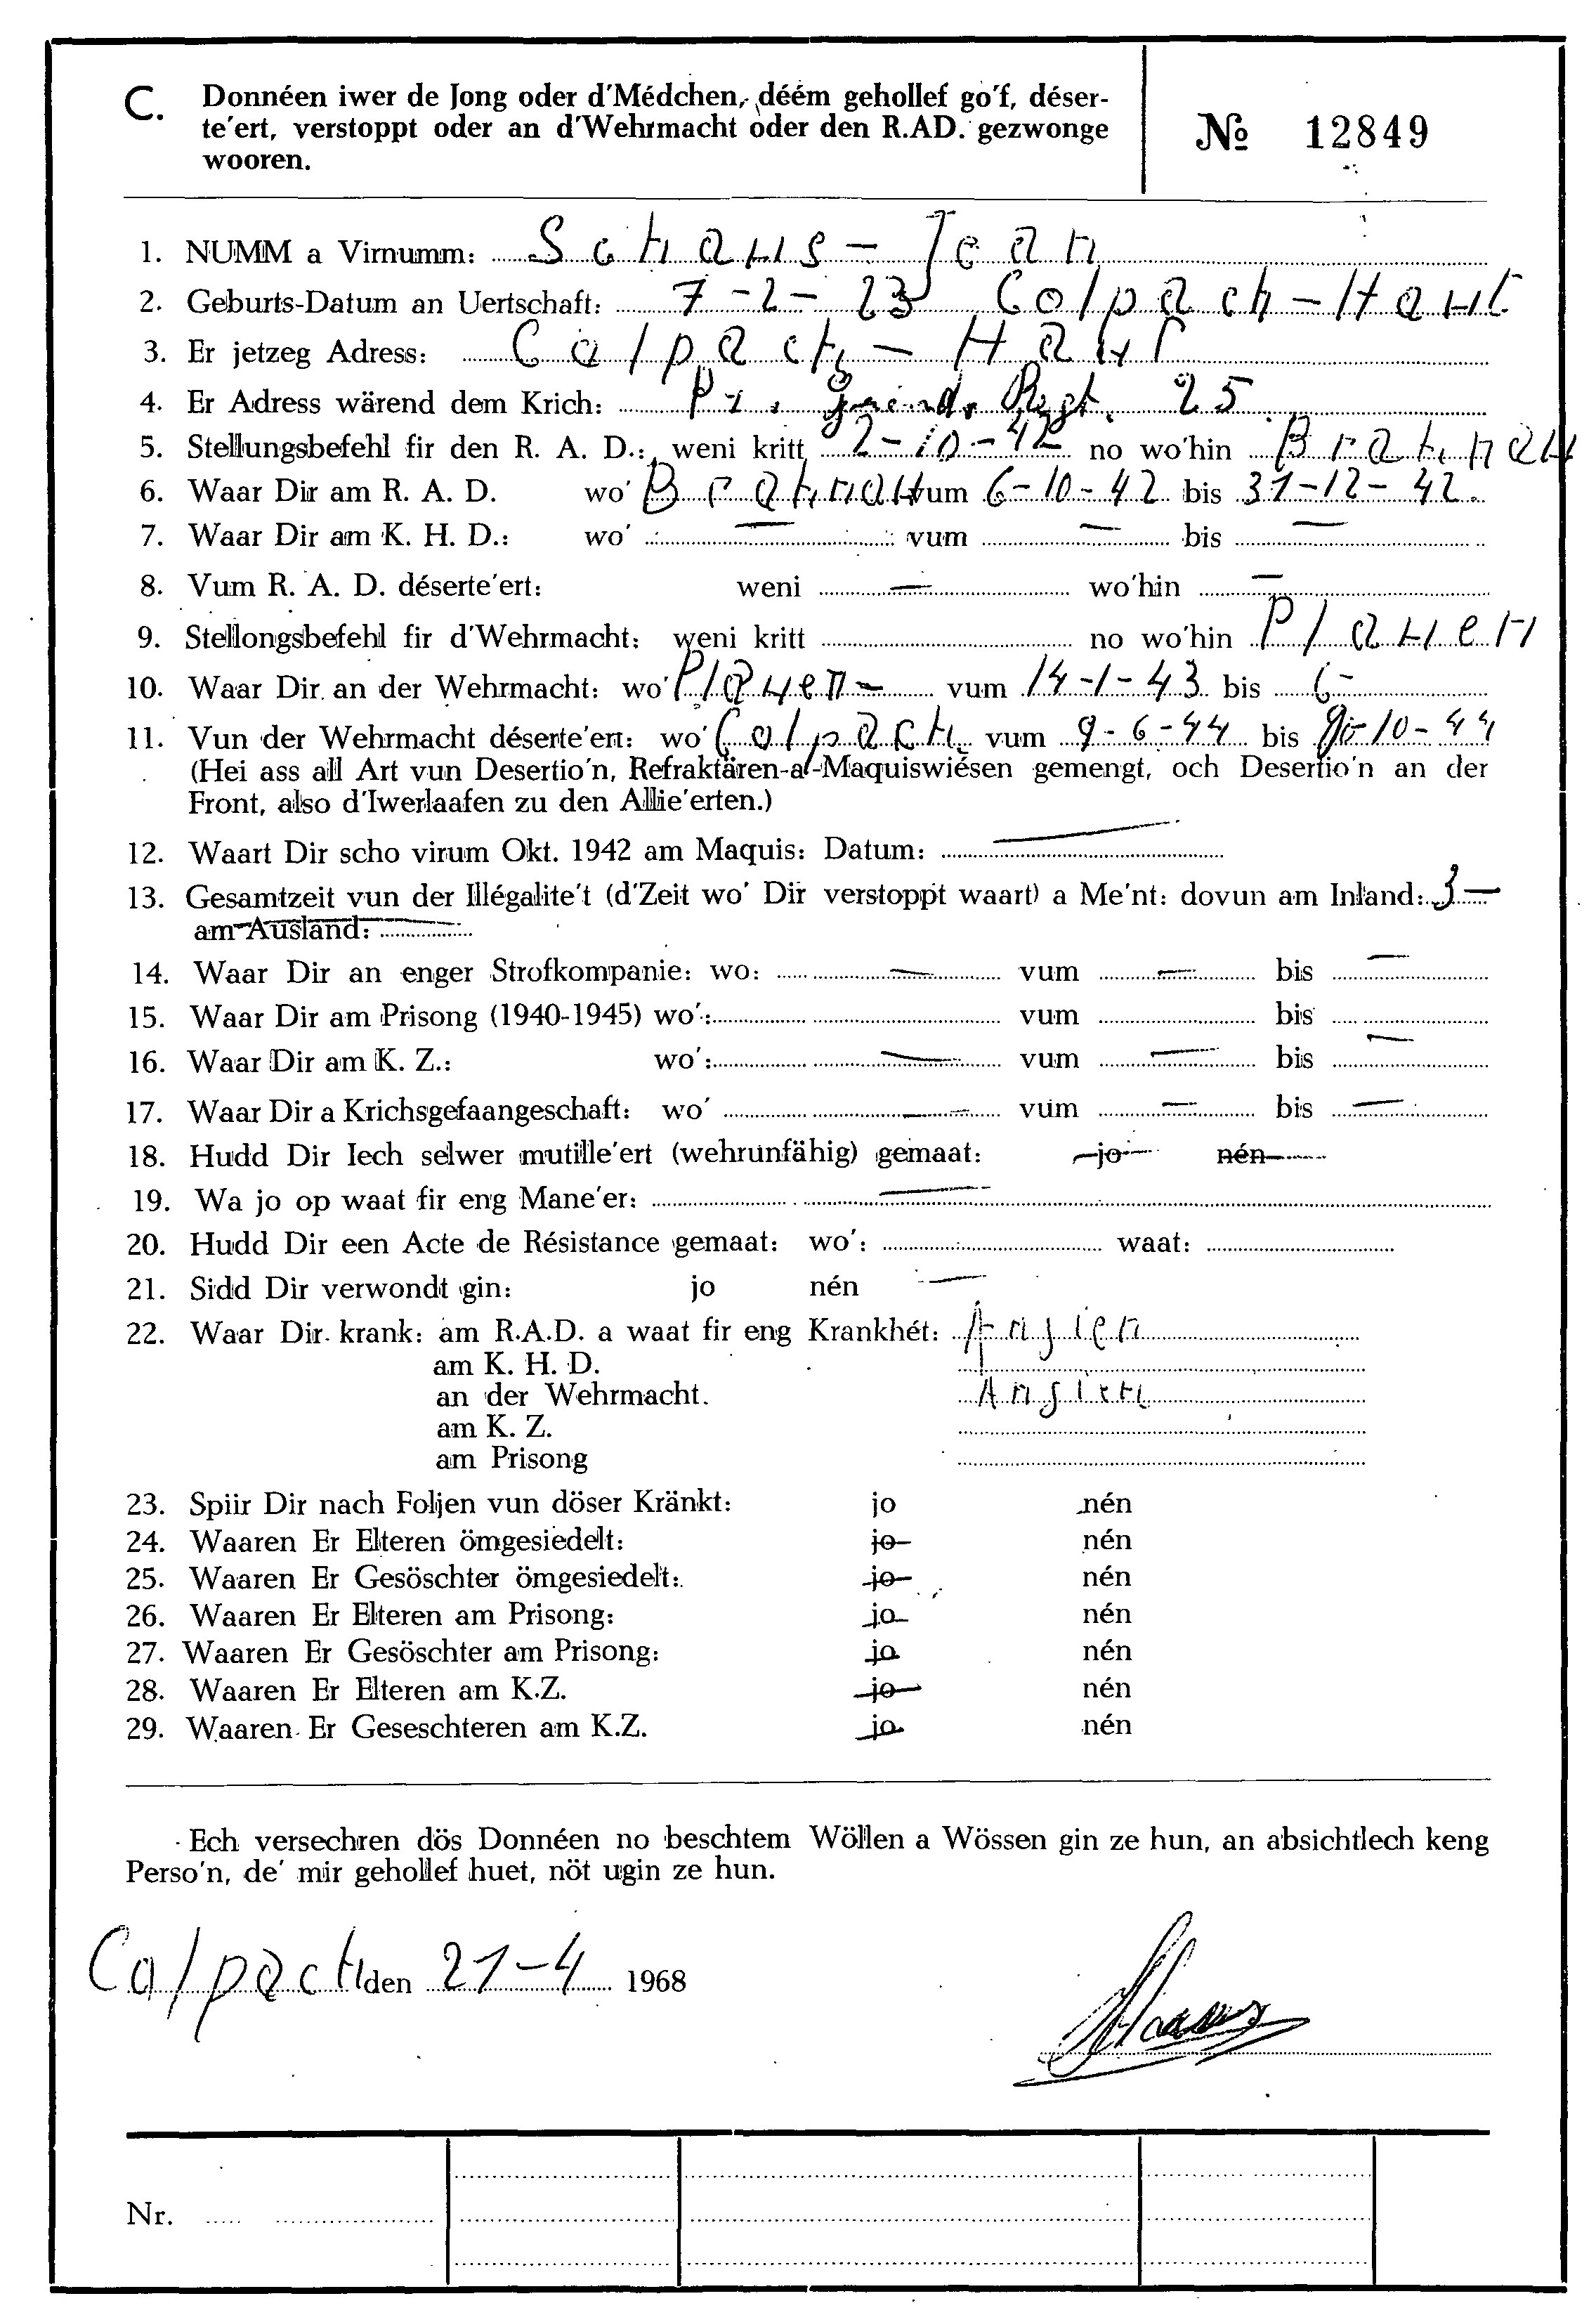 C. Donnéen iwer de Jong oder d'Médchen, déém gehollef go'f, déser-
te'ert, verstoppt oder an d'Wehrmacht oder den R.AD. gezwonge
wooren.
№ 12849
1. NUMM a Virnumm: Schaus - Jean
2. Geburts-Datum an Uertschaft: 7-2-23 Colpach-Haut
3. Er jetzeg Adress: Colpach - Haut
4. Er Adress wärend dem Krich: Pz. Regt. 25
5. Stellungsbefehl fir den R. A. D.: weni kritt 2-10-42 no wo'hin Bratnau
6. Waar Dir am R. A. D. wo' Bratnau vum 6-10-42 bis 31-12-42.
7. Waar Dir am K. H. D.: wo' — vum — bis —
8. Vum R. A. D. déserte'ert: weni — wo'hin —
9. Stellongsbefehl fir d'Wehrmacht: weni kritt no wo'hin Plauen
10. Waar Dir an der Wehrmacht: wo' Plauen - vum 14-1-43 bis 6-
11. Vun der Wehrmacht déserte'ert: wo' Colpach vum 9-6-44 bis 10-44
(Hei ass all Art vun Desertio'n, Refraktären-a'-Maquiswiésen gemengt, och Desertio'n an der
Front, also d'Iwerlaafen zu den Allie'erten.)
12. Waart Dir scho virum Okt. 1942 am Maquis: Datum: —
13. Gesamtzeit vun der Illégalite't (d'Zeit wo' Dir verstoppt waart) a Me'nt: dovun am Inland: 3 —
am Ausland: —
14. Waar Dir an enger Strofkompanie: wo: — vum — bis —
15. Waar Dir am Prisong (1940-1945) wo': vum bis
16. Waar Dir am K. Z.: wo': — vum — bis —
17. Waar Dir a Krichsgefaangeschaft: wo' — vum — bis —
18. Hudd Dir Iech selwer mutille'ert (wehrunfähig) gemaat: jo nén
19. Wa jo op waat fir eng Mane'er: —
20. Hudd Dir een Acte de Résistance gemaat: wo': waat:
21. Sidd Dir verwondt gin: jo nén —
22. Waar Dir krank: am R.A.D. a waat fir eng Krankhét: Angien
am K. H. D.
an der Wehrmacht. Angien
am K. Z.
am Prisong
23. Spiir Dir nach Foljen vun döser Kränkt: jo nén
24. Waaren Er Elteren ömgesiedelt: jo nén
25. Waaren Er Gesöschter ömgesiedelt: jo nén
26. Waaren Er Elteren am Prisong: jo nén
27. Waaren Er Gesöschter am Prisong: jo nén
28. Waaren Er Elteren am K.Z. jo nén
29. Waaren Er Geseschteren am K.Z. jo nén
Ech versechren dös Donnéen no beschtem Wöllen a Wössen gin ze hun, an absichtlech keng
Perso'n, de' mir gehollef huet, nöt ugin ze hun.
Colpach den 21-4 1968
Schaus
Nr.